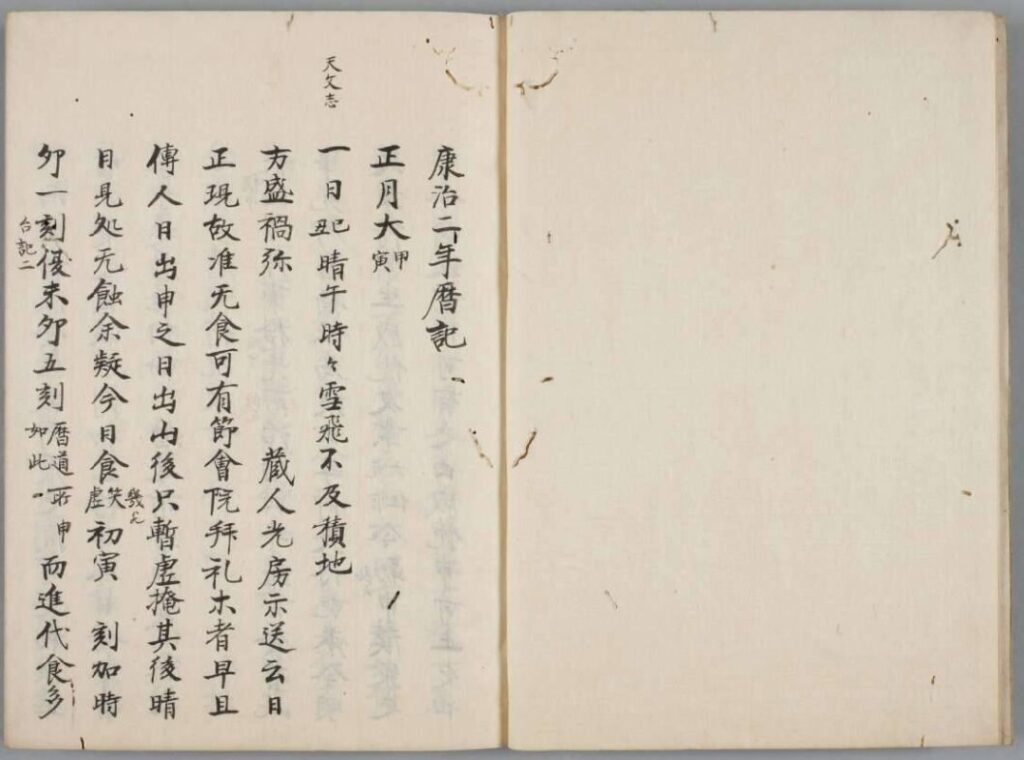 康治二年暦記
正月大 甲寅
天文志
一日 己丑 晴午時々雪飛不及積地
方盛禍弥 蔵人光房示送云日
正現故准无食可有節會院拜礼木者早旦
傳人日出申之日出山後只暫虚掩其後晴
目見処无蝕余疑今日食虚 初寅 刻加時
卯一刻復末卯五刻 暦道所申如此 而進代食多
台記二